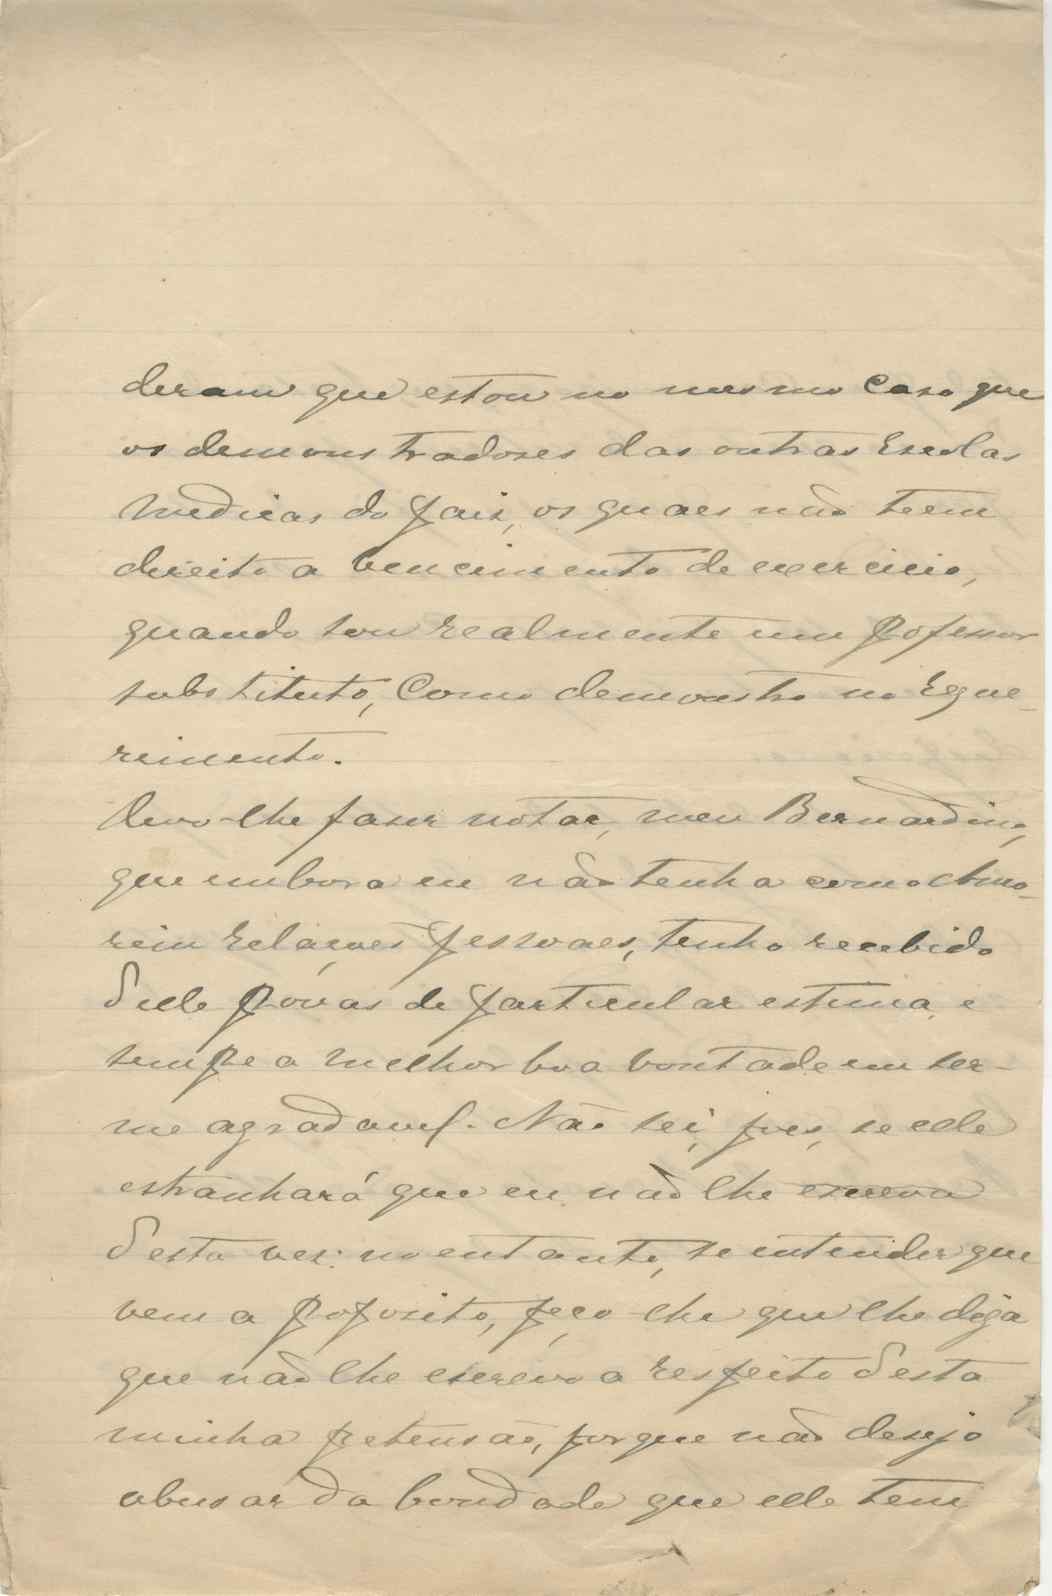 deram que estou no mesmo caso que
os demonstradores das outras Escolas
Medicas do paiz, os quaes não teem
direito a vencimento de exercicio,
quando sou realmente um professor
substituto, como demonstro no reque-
rimento.
Devo-lhe faser notar, meu Bernardino,
que embora eu não tenha com o Amo-
rim relações pessoaes, tenho recebido
d'elle provas de particular estima, e
sempre a melhor boa vontade em ser-
me agradavel. Não sei, pois, se elle
estranhará que eu não lhe escreva
d'esta vez: no entanto, se intender que
vem a proposito, peço-lhe que lhe diga
que não lhe escrevo a respeito d'esta
minha pretensão, porque não desejo
abusar da bondade que elle tem